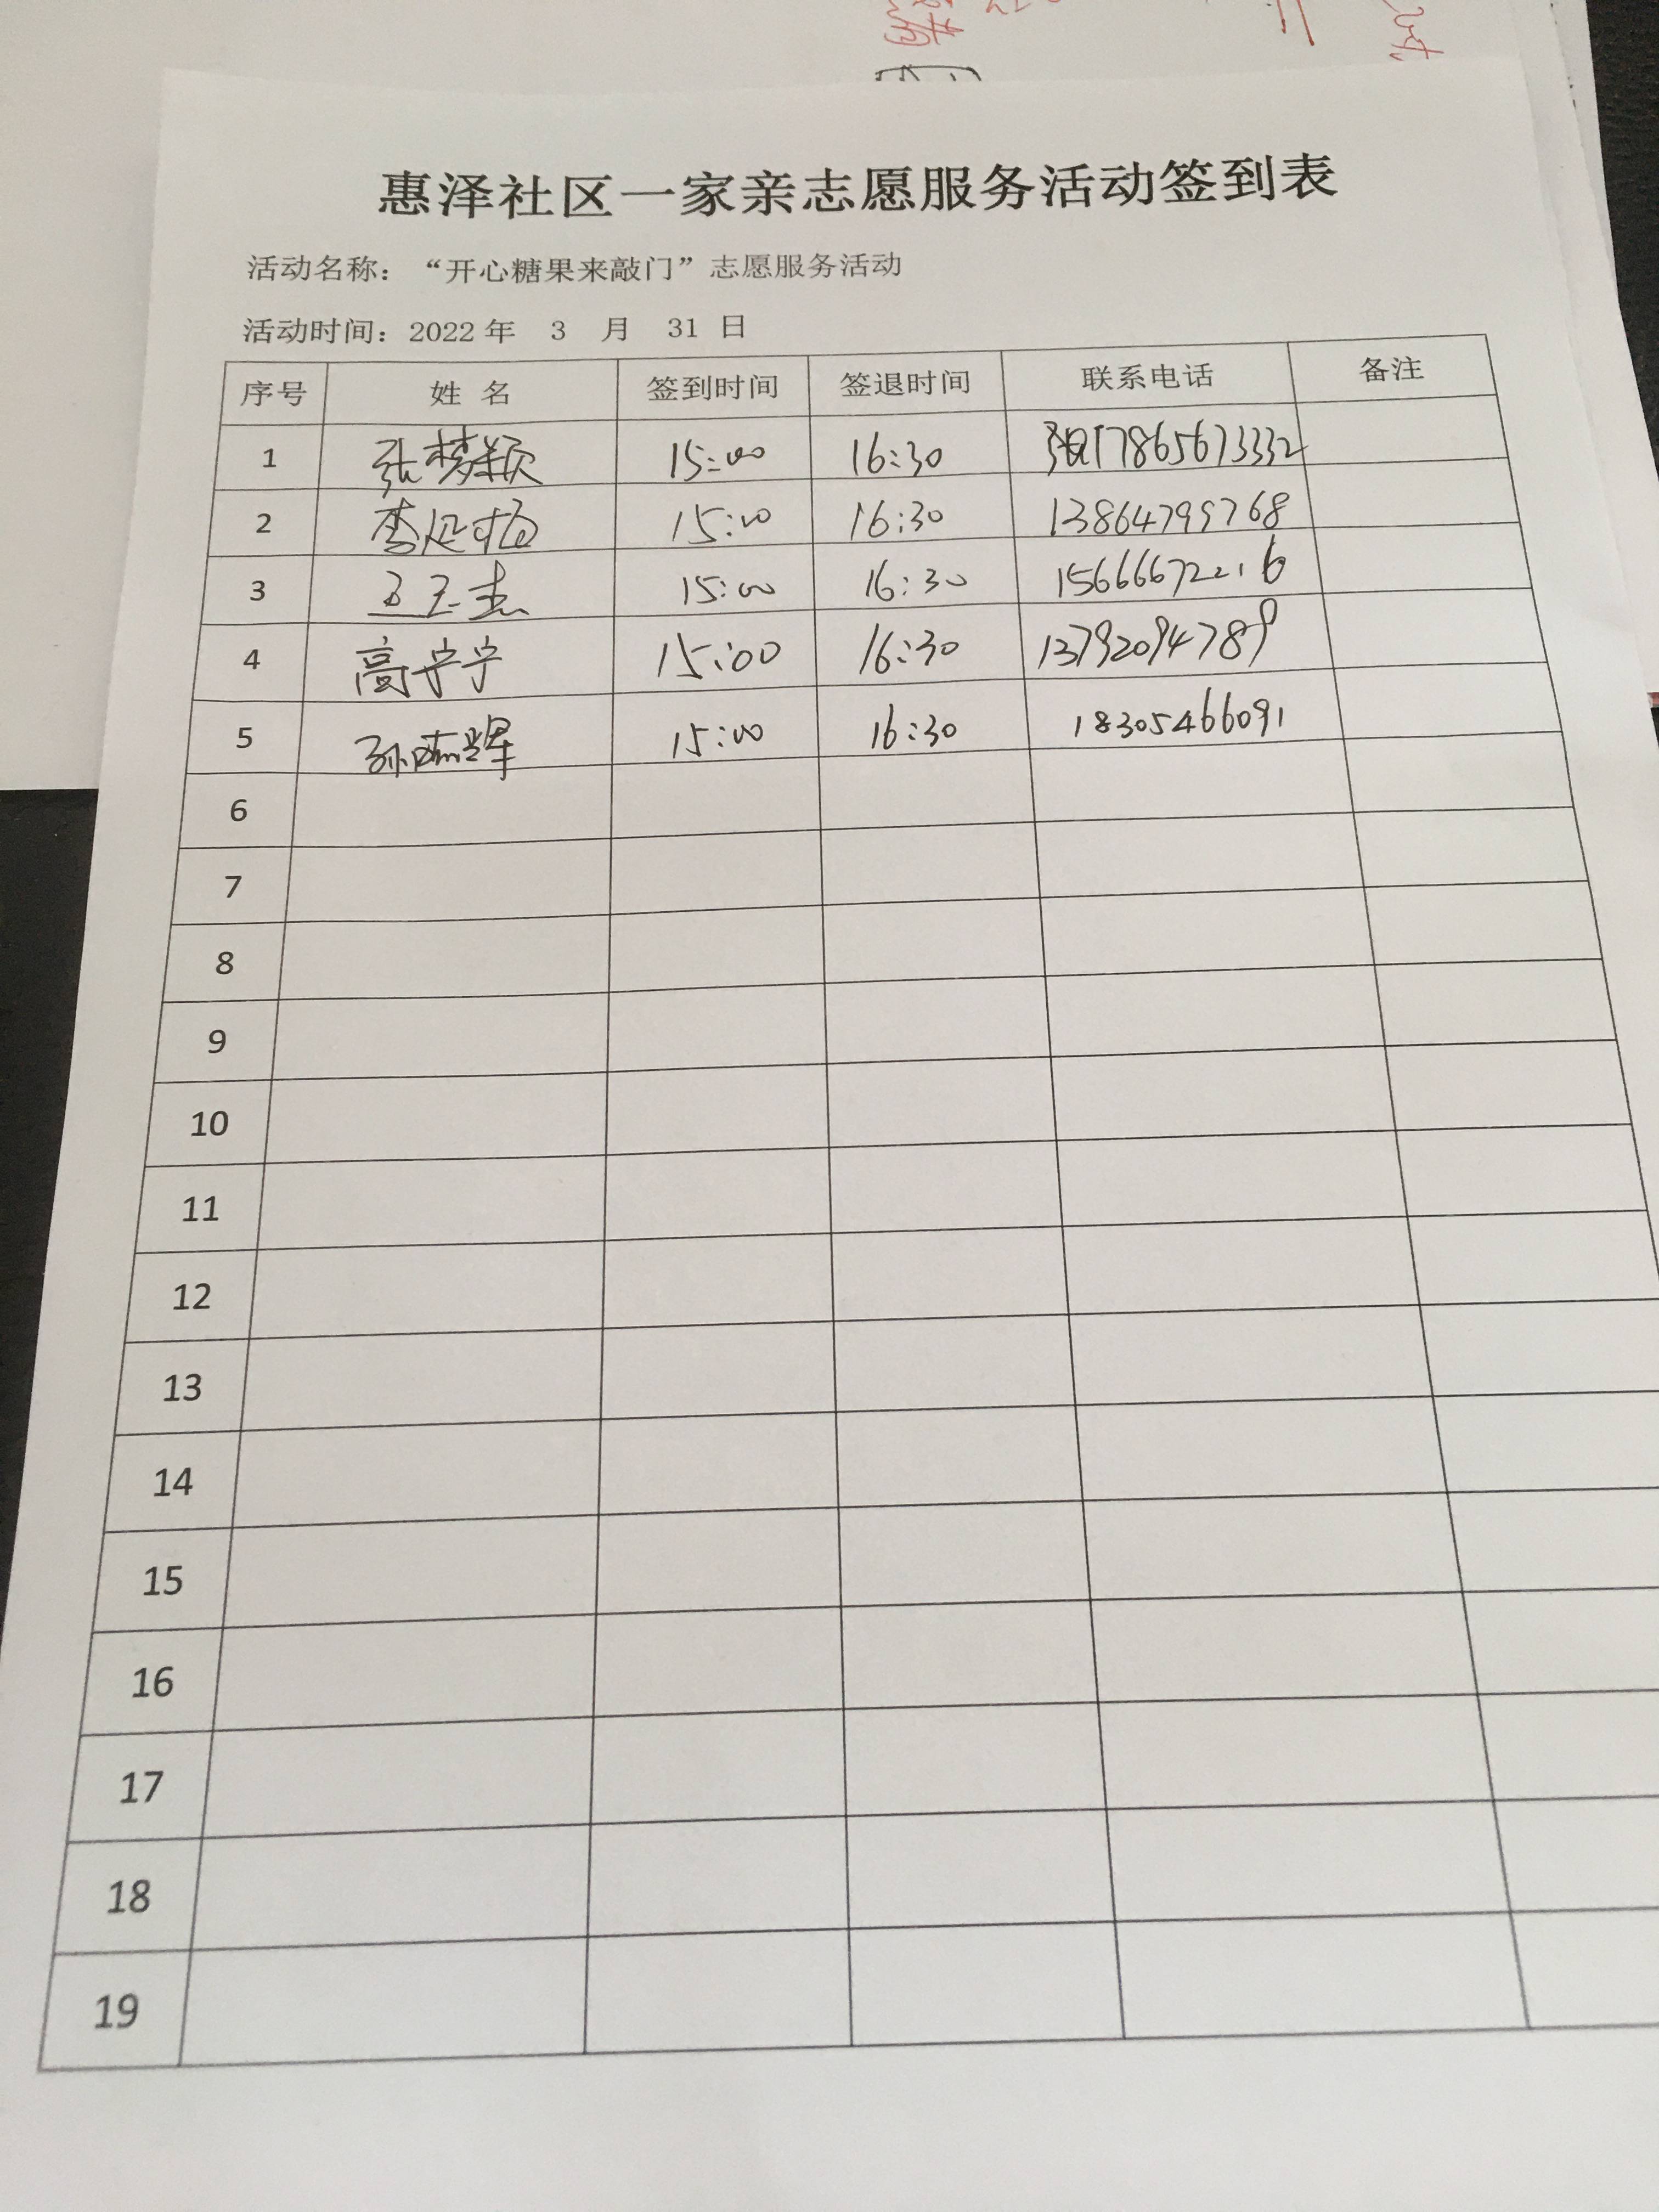 惠泽社区一家亲志愿服务活动签到表
活动名称：“开心糖果来敲门”志愿服务活动
活动时间：2022年 3 月 31 日
序号 姓 名 签到时间 签退时间 联系电话 备注
1 张梦颖 15:00 16:30 17865673332
2 李延 15:00 16:30 13864799768
3 15:00 16:30 15666672216
4 高宁宁 15:00 16:30 13792094789
5 孙晓辉 15:00 16:30 18305466091
6
7
8
9
10
11
12
13
14
15
16
17
18
19